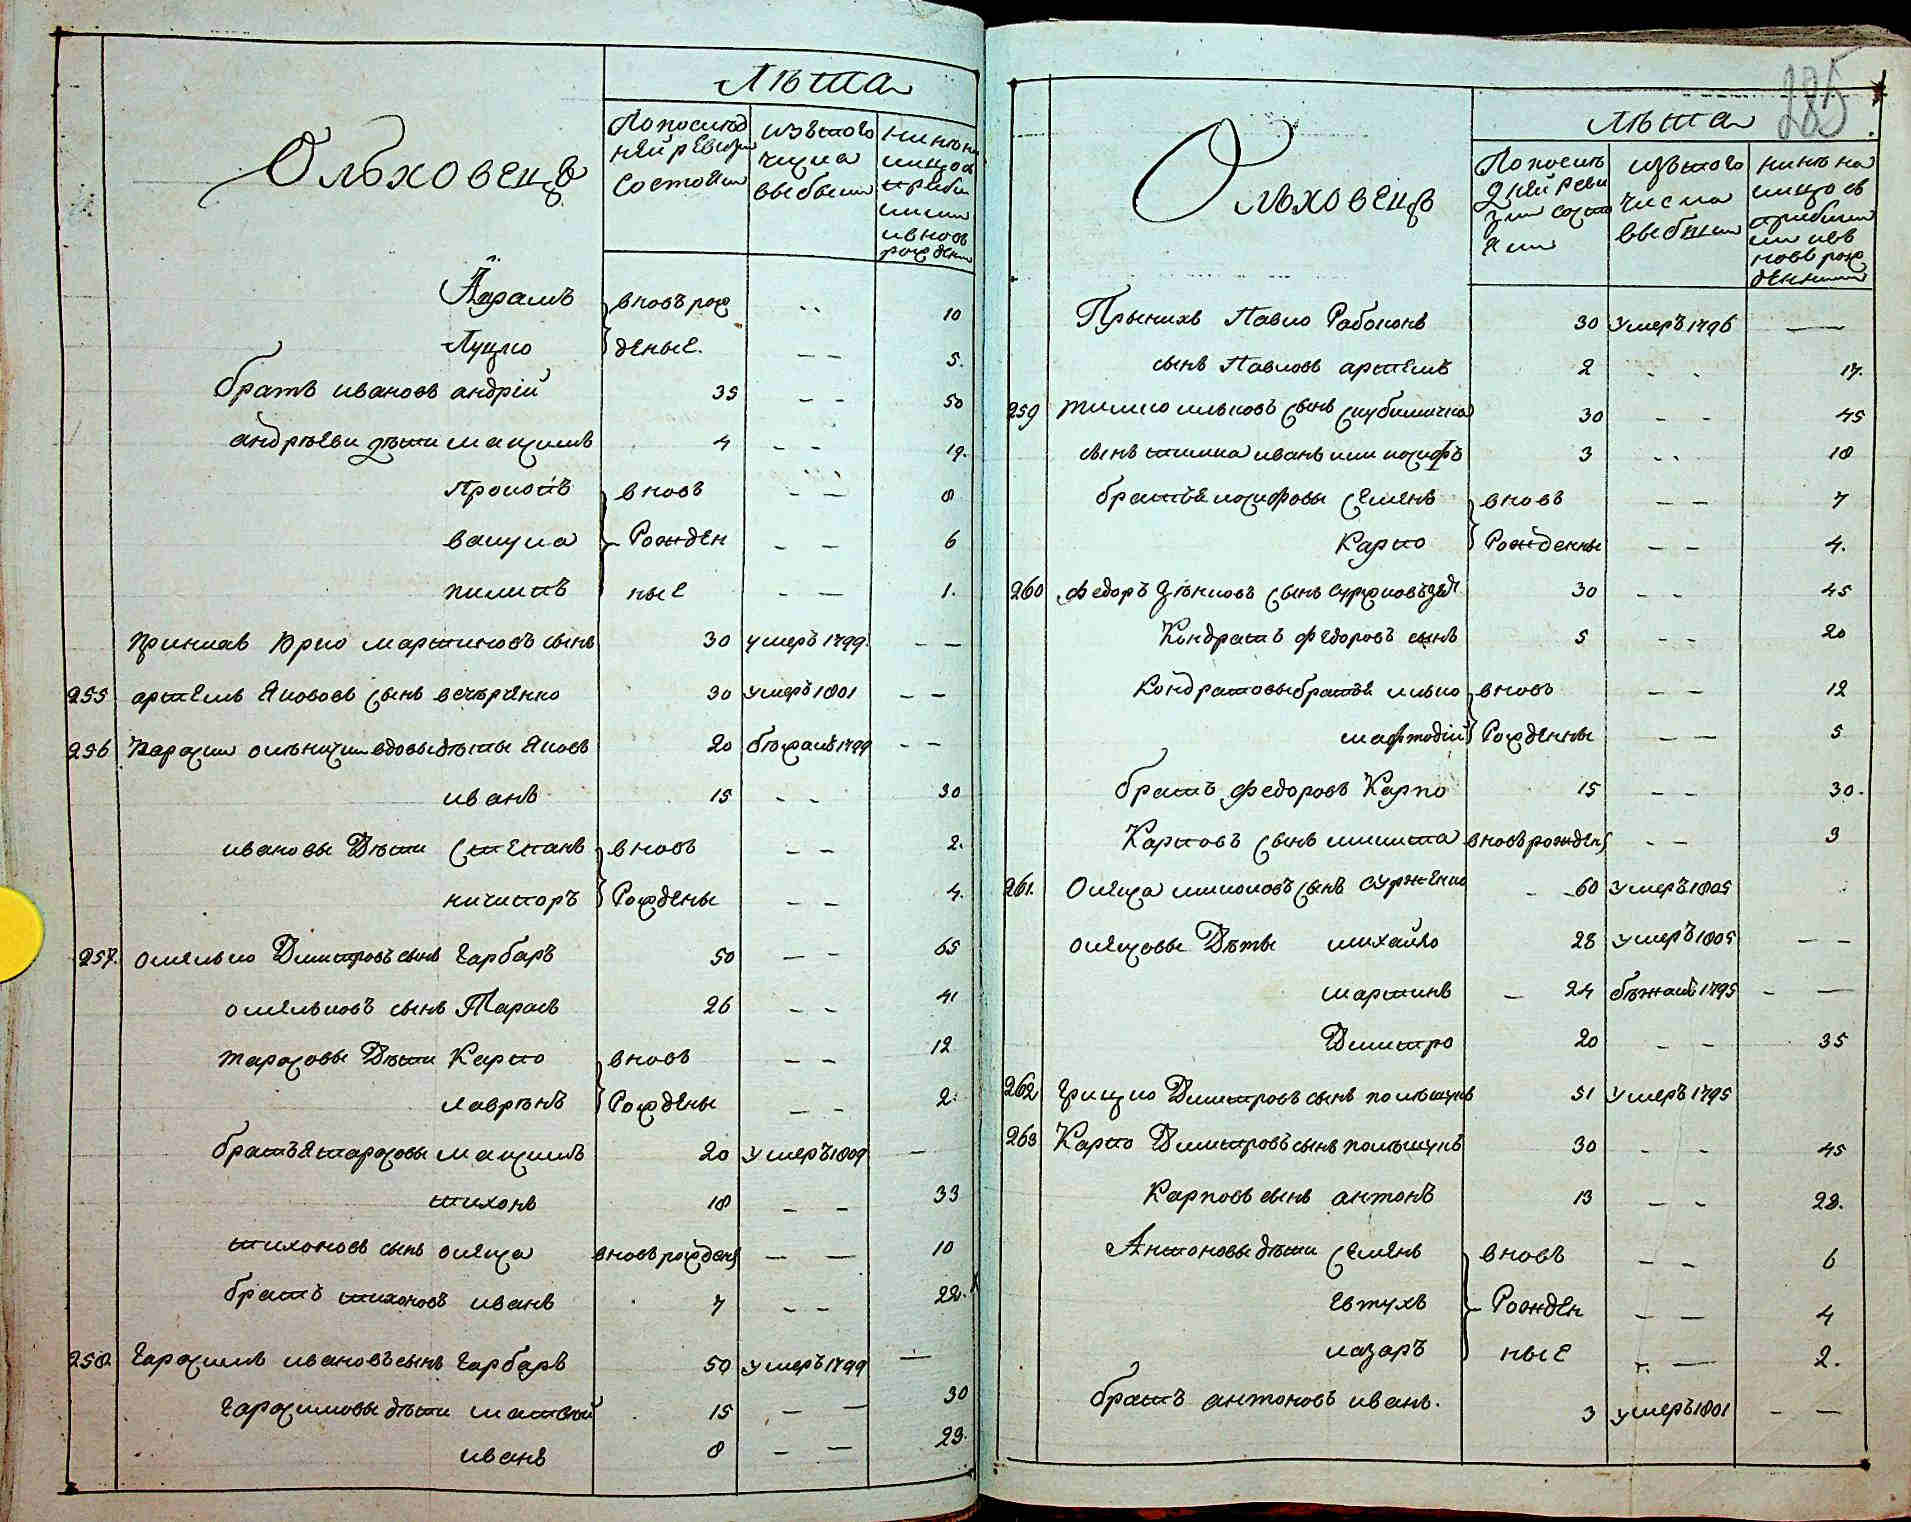 Лѣта
Ольховецъ
По послѣд
ней ревизіи
состояли
изътого
числа
выбыли
нинѣ на
лицо съ
прибы
лими
ивновъ
рожден
Абрамъ вновь рож 10
Луцко деные. 5.
братъ ивановъ андрій 35 50
андрѣеви дѣти макѣимъ 4 19.
Прокопъ вновъ 8
вакула Рожден 6
пилипъ ные 1.
Приймав Юрко мартиновъ сынъ 30 умеръ 1799.
255 артемъ Якововъ сынъ вечѣренко 30 умеръ 1801
256 вдовы дѣты Яковъ 20 бѣжалъ 1799
иванъ 15 30
ивановы Дѣти Степанъ вновъ 2.
ничипоръ Рождены 4.
257. омелько Дмитровъ сынъ Гарбаръ 50 65
омельковъ сынъ Тарасъ 26 41
тарасовы Дѣти Карпо вновъ 12
лаврѣнъ Рождены 2.
братья тарасовы макѣимъ 20 умеръ 1809
тихонъ 18 33
тихоновъ сынъ олекса вновърожден 10
братъ тихоновъ иванъ 7 22.
258 Гарасимъ ивановъ сынъ Гарбаръ 50 умеръ 1799
Гарасимовы дѣти матвѣй 15 30
иванъ 8 23.
285
лѣта
Ольховецъ
По послѣ
дней реви
зіи состо
яли
изътого
числа
выбыли
нинѣ на
лицо съ
прибыли
ми ивъ
новъ рож
денними
Прыниявъ Павло Рабоконь 30 умеръ 1796
сынъ Павловъ артемъ 2 17.
259 тимко ильковъ сынъ 30 45
сынъ тимка иванъ или іосифъ 3 18
братья іосифовы Семенъ вновъ 7
Карпо Рожденны 4.
260 Федоръ Зѣнковъ сынъ 30 45
Кондратъ Федоровъ сынъ 5 20
Кондратовы братья илько вновъ 12
мафтодій Рожденны 5
братъ Федоровъ Карпо 15 30.
Карповъ сынъ микита вновърожден 3
261. Олекса миколовъ сынъ Сурженко 60 умеръ 1805
олексовы Дѣты михайло 28 умеръ 1805
мартинъ 24 бѣжалъ 1795
Дмитро 20 35
262 Грицко Дмитровъ сынъ полѣщукъ 51 умеръ 1795
263 Карпо Дмитровъ сынъ полѣщукъ 30 45
Карповъ сынъ антонъ 13 28.
Антоновы дѣти Семенъ вновъ 6
Евтухъ Рожден 4
лазаръ ные 2.
братъ антоновъ иванъ. 3 умеръ 1801